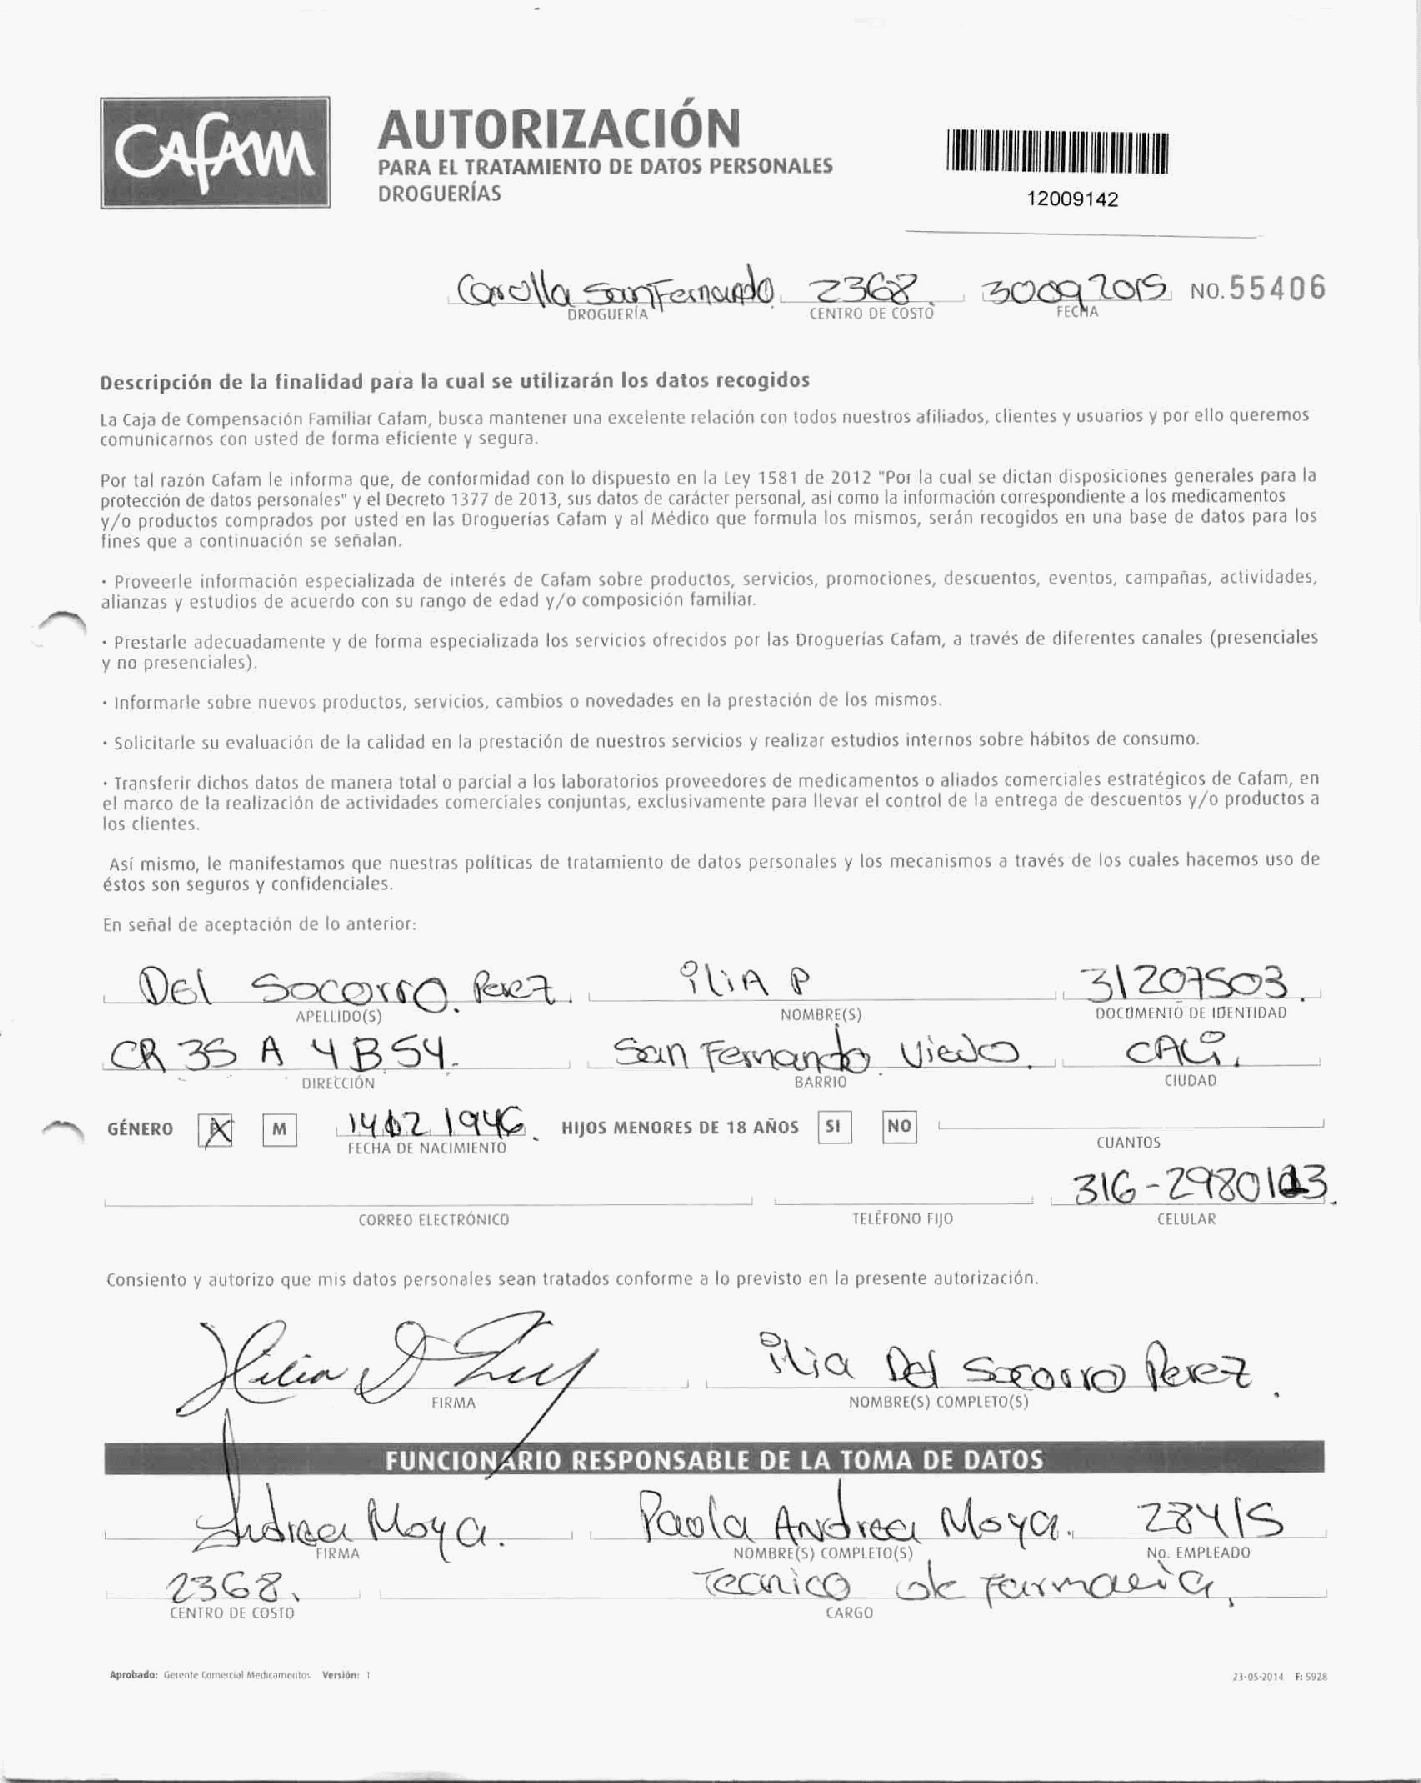 CAFAM
AUTORIZACIÓN
PARA EL TRATAMIENTO DE DATOS PERSONALES
DROGUERÍAS
12009142
Corolla SanFernando 2368. 30092015 NO. 55406
DROGUERÍA CENTRO DE COSTO FECHA
Descripción de la finalidad para la cual se utilizarán los datos recogidos
La Caja de Compensación Familiar Cafam, busca mantener una excelente relación con todos nuestros afiliados, clientes y usuarios y por ello queremos
comunicarnos con usted de forma eficiente y segura.
Por tal razón Cafam le informa que, de conformidad con lo dispuesto en la Ley 1581 de 2012 "Por la cual se dictan disposiciones generales para la
protección de datos personales" y el Decreto 1377 de 2013, sus datos de carácter personal, así como la información correspondiente a los medicamentos
y/o productos comprados por usted en las Droguerías Cafam y al Médico que formula los mismos, serán recogidos en una base de datos para los
fines que a continuación se señalan.
· Proveerle información especializada de interés de Cafam sobre productos, servicios, promociones, descuentos, eventos, campañas, actividades,
alianzas y estudios de acuerdo con su rango de edad y/o composición familiar.
· Prestarle adecuadamente y de forma especializada los servicios ofrecidos por las Droguerías Cafam, a través de diferentes canales (presenciales
y no presenciales).
· Informarle sobre nuevos productos, servicios, cambios o novedades en la prestación de los mismos.
· Solicitarle su evaluación de la calidad en la prestación de nuestros servicios y realizar estudios internos sobre hábitos de consumo.
· Transferir dichos datos de manera total o parcial a los laboratorios proveedores de medicamentos o aliados comerciales estratégicos de Cafam, en
el marco de la realización de actividades comerciales conjuntas, exclusivamente para llevar el control de la entrega de descuentos y/o productos a
los clientes.
Así mismo, le manifestamos que nuestras políticas de tratamiento de datos personales y los mecanismos a través de los cuales hacemos uso de
éstos son seguros y confidenciales.
En señal de aceptación de lo anterior:
Del Socorro Perez. iliA P 31207503.
APELLIDO(S) NOMBRE(S) DOCUMENTO DE IDENTIDAD
CR 35 A 4B54. San Fernando Viejo. CALi.
DIRECCIÓN BARRIO CIUDAD
GÉNERO X M 14021946. HIJOS MENORES DE 18 AÑOS SI NO
FECHA DE NACIMIENTO CUANTOS
316-2980113.
CORREO ELECTRÓNICO TELÉFONO FIJO CELULAR
Consiento y autorizo que mis datos personales sean tratados conforme a lo previsto en la presente autorización.
ilia Del Socorro Perez.
FIRMA NOMBRE(S) COMPLETO(S)
FUNCIONARIO RESPONSABLE DE LA TOMA DE DATOS
Andrea Moya. Paola Andrea Moya. 28415
FIRMA NOMBRE(S) COMPLETO(S) No. EMPLEADO
2368. Tecnico de farmacia.
CENTRO DE COSTO CARGO
Aprobado: Gerente Comercial Medicamentos Versión: 1 23-05-2014 F: 5928